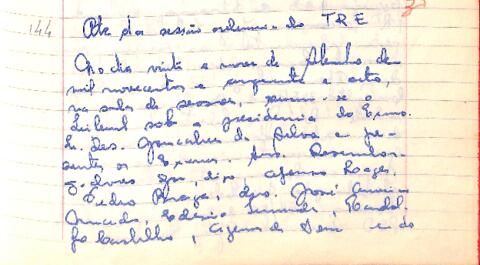 144
Ata da sessão ordinária do TRE
No dia vinte e nove de de
mil novecentos e cinquenta e oito,
na sala de sessões, reuniu-se o
Tribunal sob a presidencia do Exmo.
Sr. Des. Gonçalves da Silva e pre-
sentes os Exmos. Srs. Desembar-
gadores digo, Afonso Lages,
Pedro Braga, drs. José Americo
Macedo,
Castilho, e do